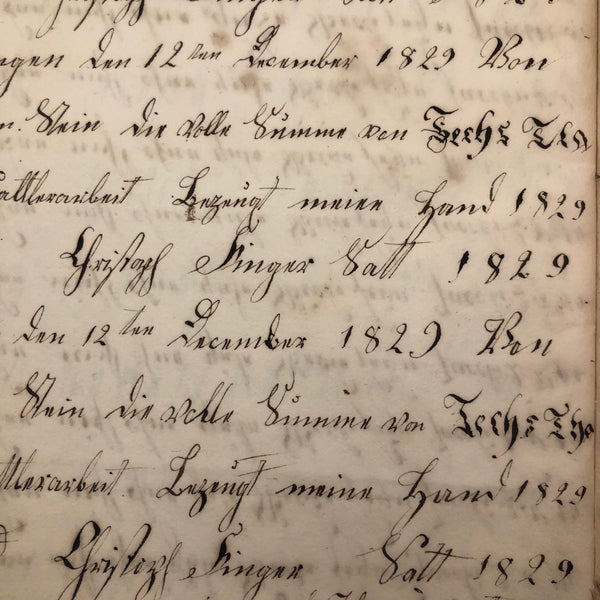 Christoph Finger Satt 1829
ngen den 12ten December 1829 Von
n. Stein die volle Summe von Sechs Tha
attlerarbeit Bezeugt meine Hand 1829
Christoph Finger Satt 1829
den 12ten December 1829 Von
Stein die volle Summe von Sechs Tha
ttlerarbeit. Bezeugt meine Hand 1829
Christoph Finger Satt 1829